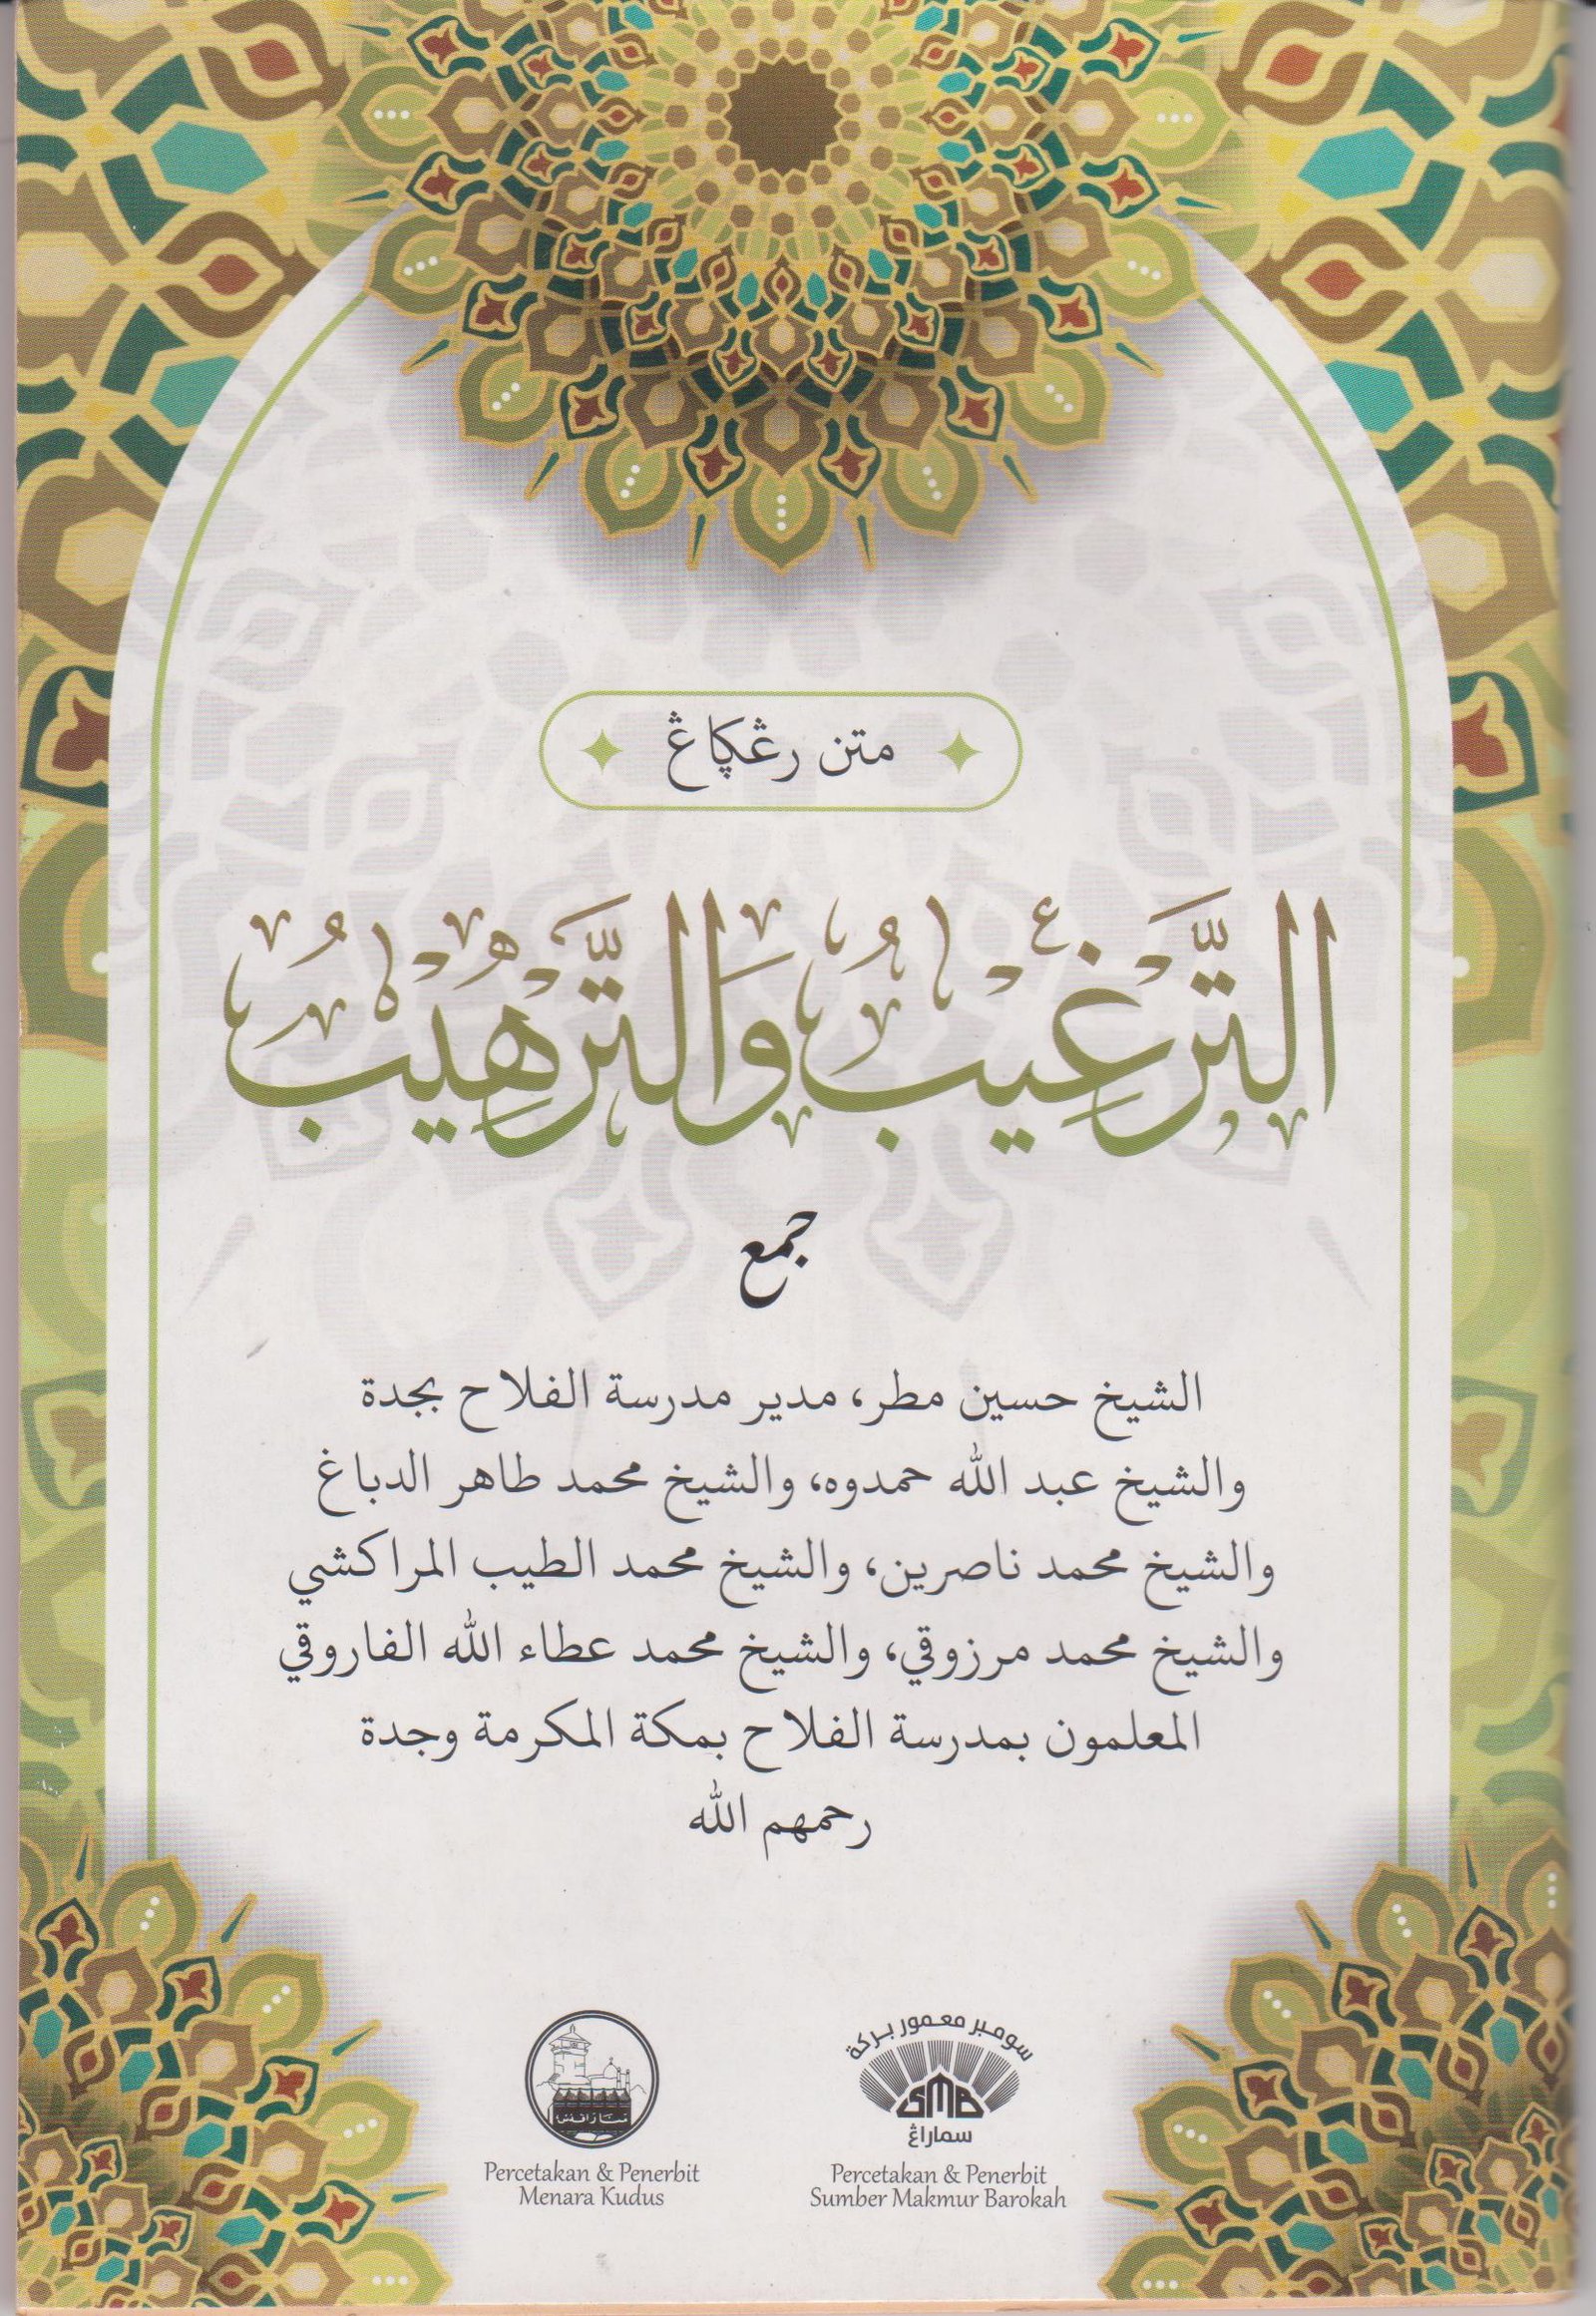 متن رڠكاڠ
التَّرْغِيْبُ وَالتَّرْهِيْبُ
جمع
الشيخ حسين مطر، مدير مدرسة الفلاح بجدة
والشيخ عبد الله حمدوه، والشيخ محمد طاهر الدباغ
والشيخ محمد ناصرين، والشيخ محمد الطيب المراكشي
والشيخ محمد مرزوقي، والشيخ محمد عطاء الله الفاروقي
المعلمون بمدرسة الفلاح بمكة المكرمة وجدة
رحمهم الله
سومبر معمور بركة
SMB
سماراڠ
Percetakan & Penerbit
Sumber Makmur Barokah
Percetakan & Penerbit
Menara Kudus